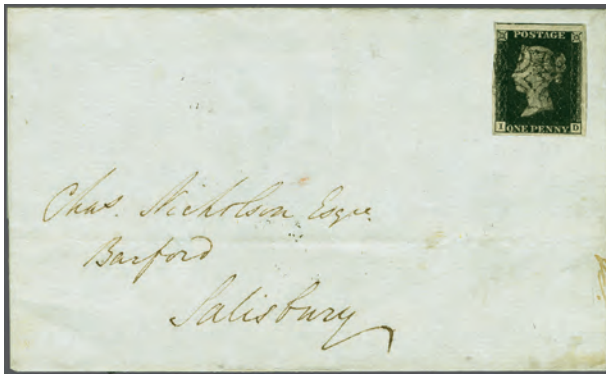 POSTAGE
I ONE PENNY D
Chas. Nicholson Esqre
Barford
Salisbury